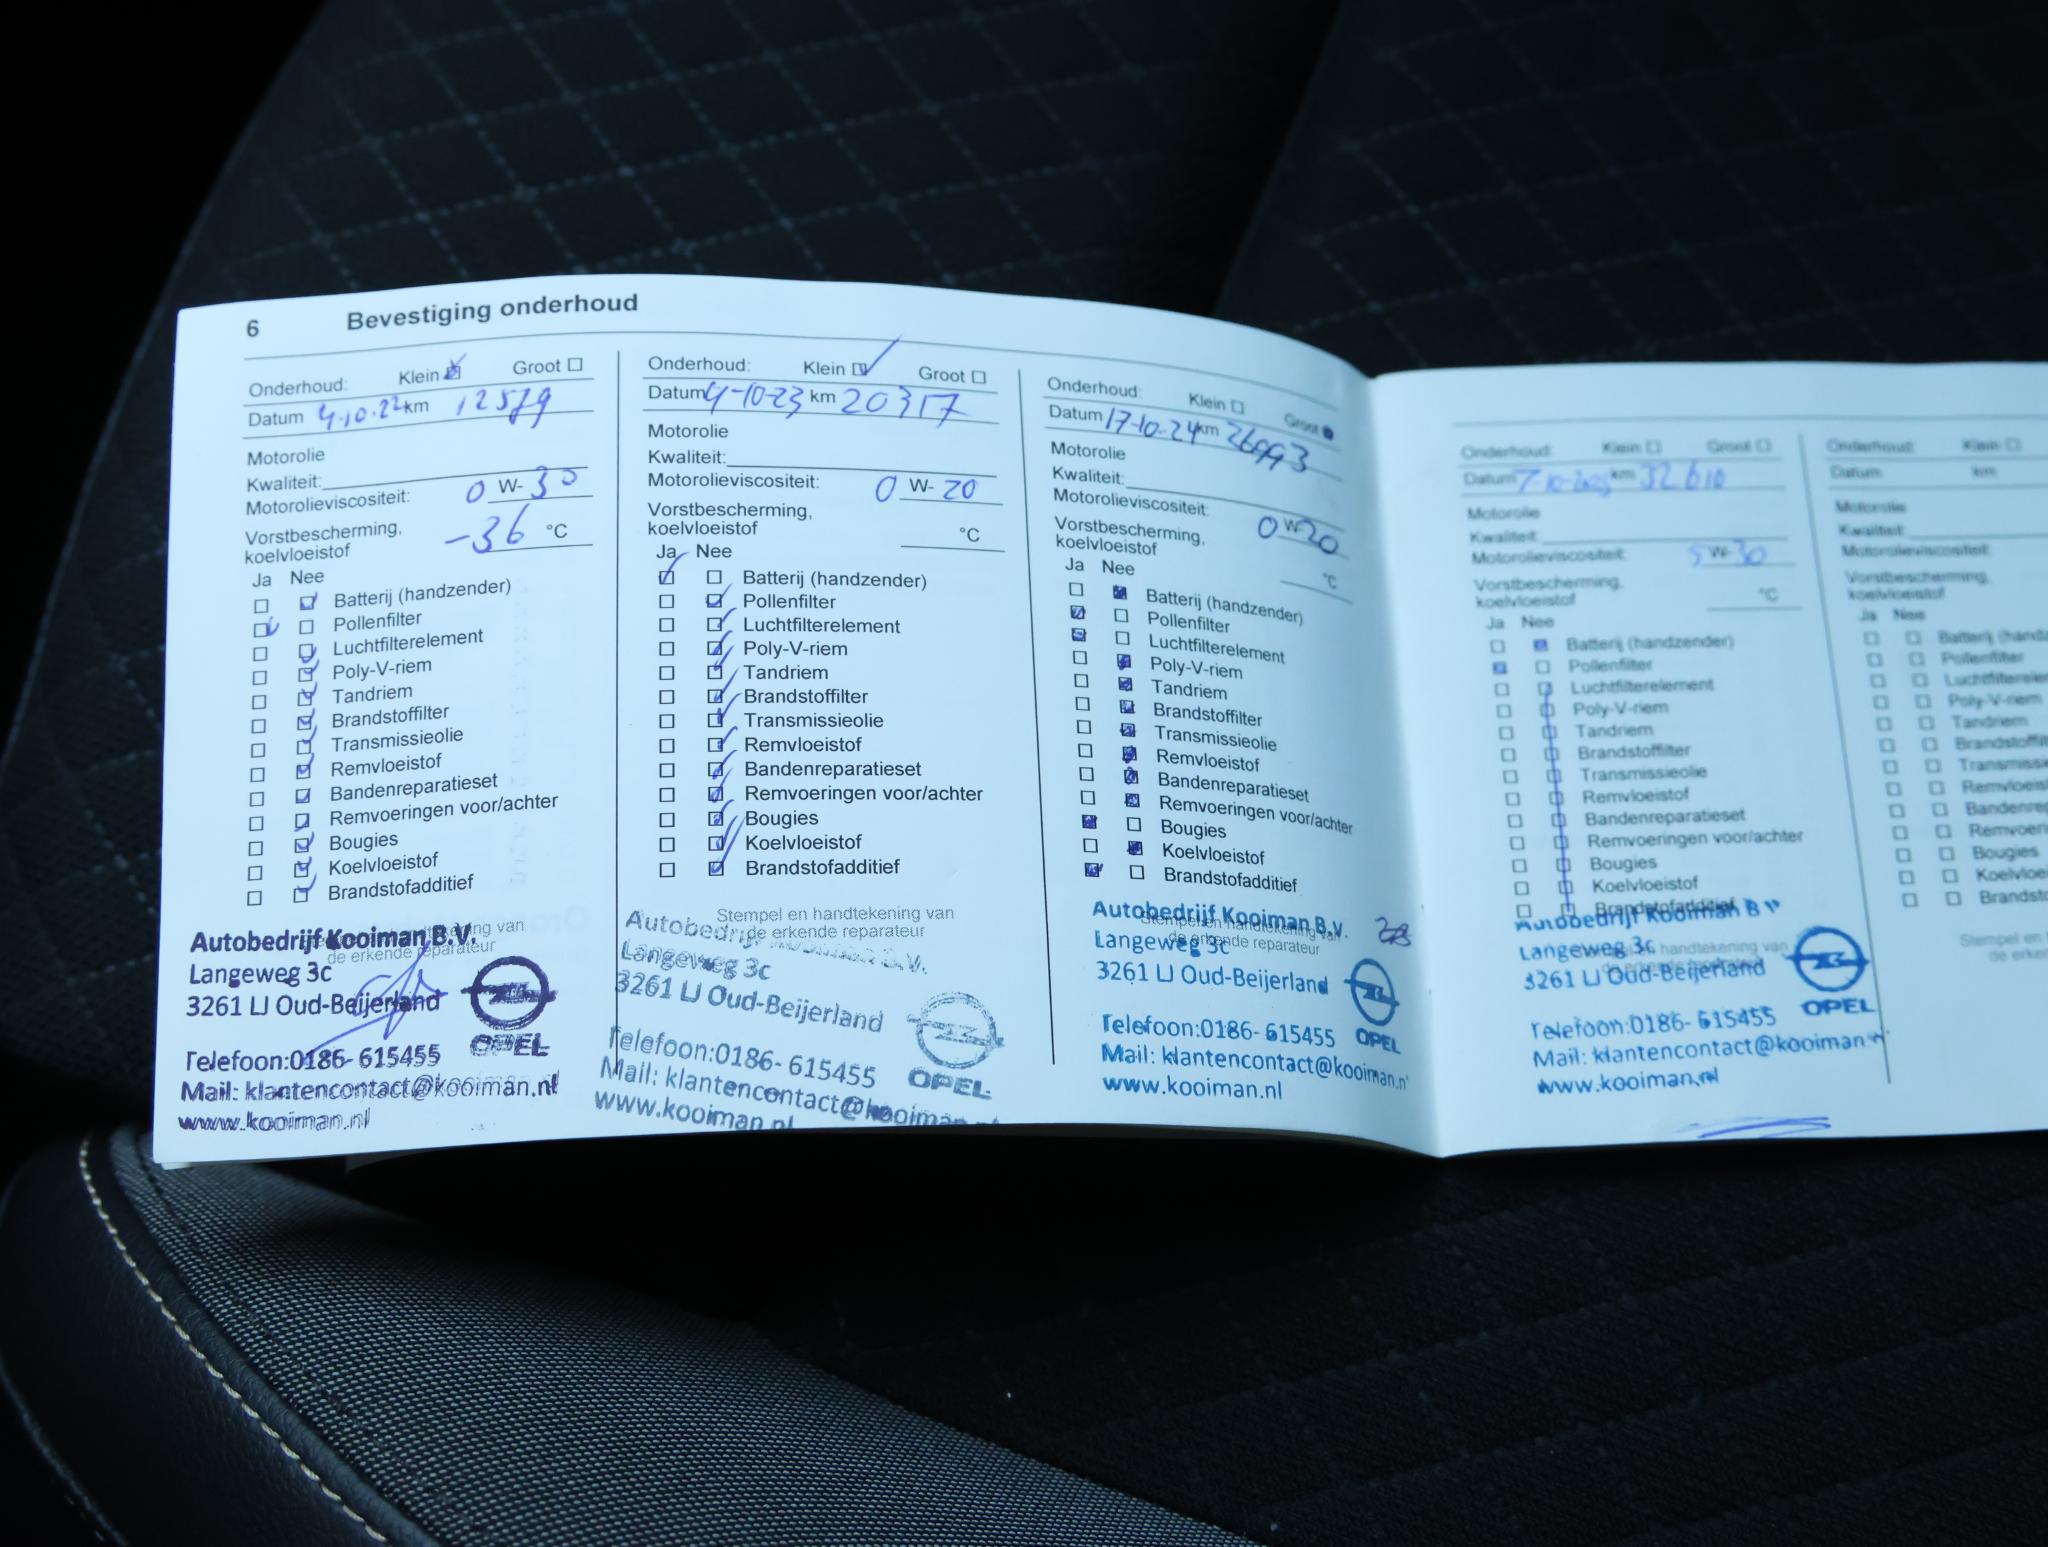 6 Bevestiging onderhoud
Onderhoud: Klein Groot
Datum 4-10-22 km 12579
Motorolie
Kwaliteit:
Motorolieviscositeit: 0 W- 30
Vorstbescherming,
koelvloeistof -36 °C
Ja Nee
Batterij (handzender)
Pollenfilter
Luchtfilterelement
Poly-V-riem
Tandriem
Brandstoffilter
Transmissieolie
Remvloeistof
Bandenreparatieset
Remvoeringen voor/achter
Bougies
Koelvloeistof
Brandstofadditief
Autobedrijf Kooiman B.V.
de erkende reparateur
Langeweg 3c
3261 LJ Oud-Beijerland
Telefoon:0186- 615455
OPEL
Mail: klantencontact@kooiman.nl
www.kooiman.nl
Onderhoud: Klein Groot
Datum 4-10-23 km 20317
Motorolie
Kwaliteit:
Motorolieviscositeit: 0 W- 20
Vorstbescherming,
koelvloeistof °C
Ja Nee
Batterij (handzender)
Pollenfilter
Luchtfilterelement
Poly-V-riem
Tandriem
Brandstoffilter
Transmissieolie
Remvloeistof
Bandenreparatieset
Remvoeringen voor/achter
Bougies
Koelvloeistof
Brandstofadditief
Stempel en handtekening van
de erkende reparateur
Autobedrijf Kooiman B.V.
Langeweg 3c
3261 LJ Oud-Beijerland
Telefoon:0186- 615455
OPEL
Mail: klantencontact@kooiman.nl
www.kooiman.nl
Onderhoud: Klein Groot
Datum 17-10-24 km 26993
Motorolie
Kwaliteit:
Motorolieviscositeit: 0 W- 20
Vorstbescherming,
koelvloeistof °C
Ja Nee
Batterij (handzender)
Pollenfilter
Luchtfilterelement
Poly-V-riem
Tandriem
Brandstoffilter
Transmissieolie
Remvloeistof
Bandenreparatieset
Remvoeringen voor/achter
Bougies
Koelvloeistof
Brandstofadditief
Autobedrijf Kooiman B.V.
Stempel en handtekening van
de erkende reparateur
Langeweg 3c
3261 LJ Oud-Beijerland
OPEL
Telefoon:0186- 615455
Mail: klantencontact@kooiman.n
www.kooiman.nl
Onderhoud: Klein Groot
Datum 7-10-2025 km 32610
Motorolie
Kwaliteit:
Motorolieviscositeit: 5 W- 30
Vorstbescherming,
koelvloeistof °C
Ja Nee
Batterij (handzender)
Pollenfilter
Luchtfilterelement
Poly-V-riem
Tandriem
Brandstoffilter
Transmissieolie
Remvloeistof
Bandenreparatieset
Remvoeringen voor/achter
Bougies
Koelvloeistof
Brandstofadditief
Autobedrijf Kooiman B V
Langeweg 3c
handtekening van
3261 LJ Oud-Beijerland
OPEL
Telefoon:0186- 615455
Mail: klantencontact@kooiman.n
www.kooiman.nl
Onderhoud: Klein
Datum km
Motorolie
Kwaliteit:
Motorolieviscositeit:
Vorstbescherming,
koelvloeistof
Ja Nee
Batterij (handz
Pollenfilter
Luchtfilterele
Poly-V-riem
Tandriem
Brandstoffilt
Transmissie
Remvloeisto
Bandenrep
Remvoerin
Bougies
Koelvloeis
Brandsto
Stempel en
de erken